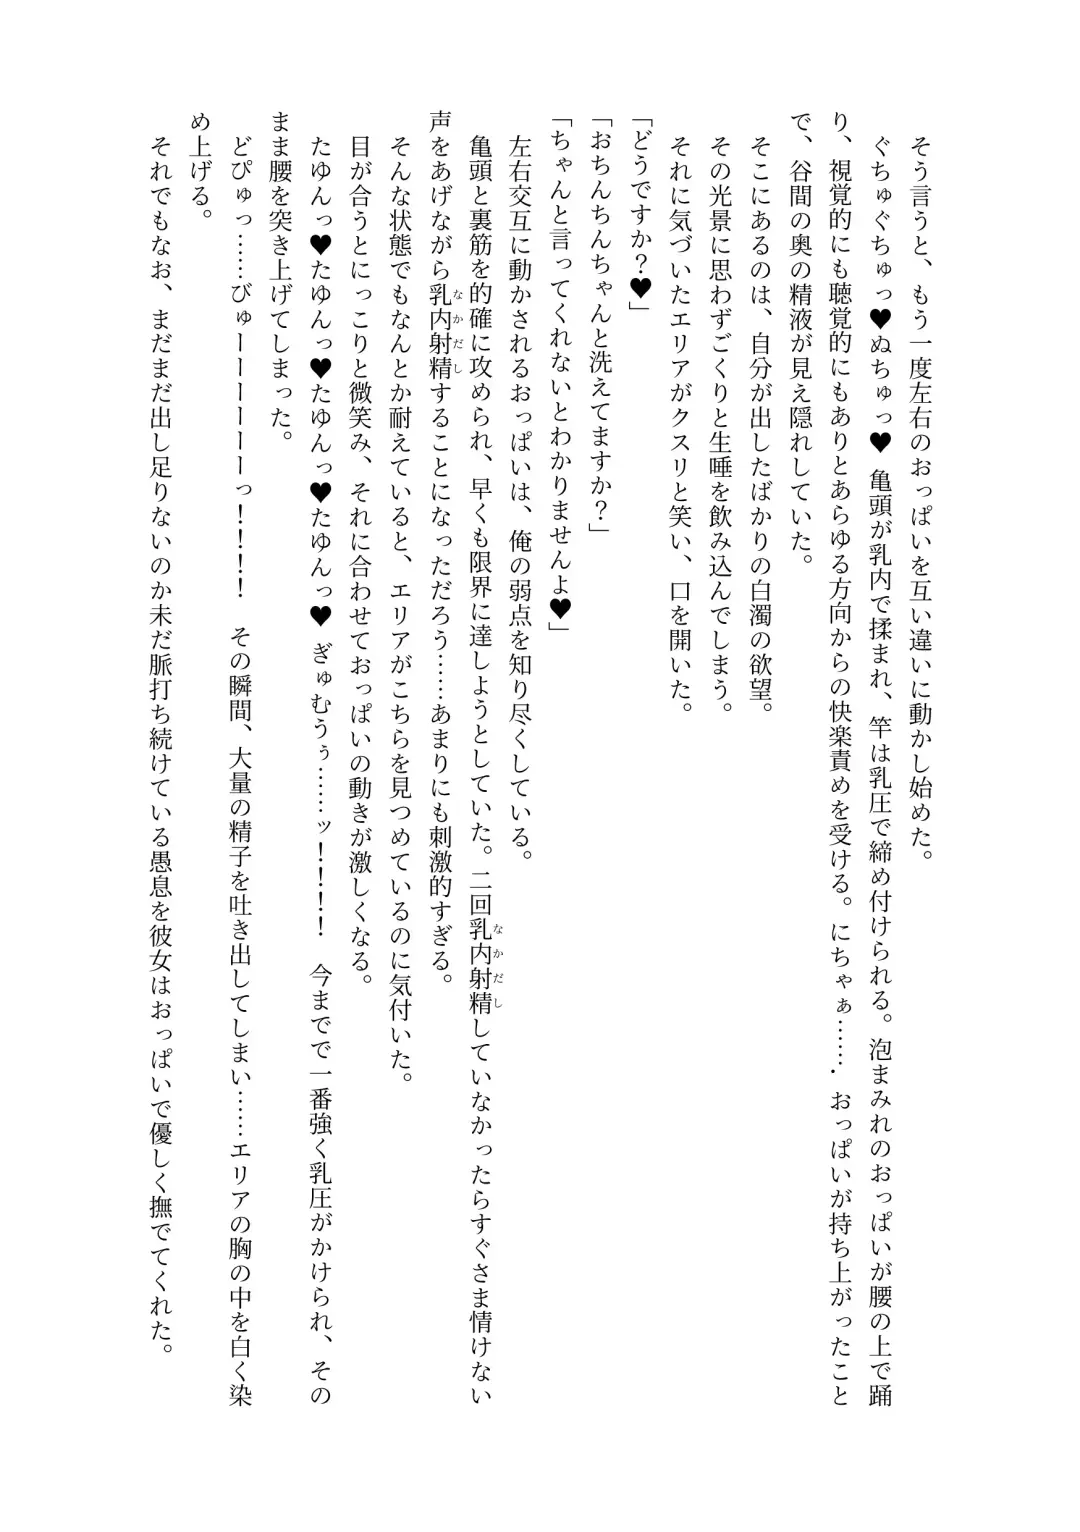 そう言うと、もう一度左右のおっぱいを互い違いに動かし始めた。
ぐちゅぐちゅっ♥ぬちゅっ♥ 亀頭が乳内で揉まれ、竿は乳圧で締め付けられる。泡まみれのおっぱいが腰の上で踊
り、視覚的にも聴覚的にもありとあらゆる方向からの快楽責めを受ける。にちゃぁ……. おっぱいが持ち上がったこと
で、谷間の奥の精液が見え隠れしていた。
そこにあるのは、自分が出したばかりの白濁の欲望。
その光景に思わずごくりと生唾を飲み込んでしまう。
それに気づいたエリアがクスリと笑い、口を開いた。
「どうですか？♥」
「おちんちんちゃんと洗えてますか？」
「ちゃんと言ってくれないとわかりませんよ♥」
左右交互に動かされるおっぱいは、俺の弱点を知り尽くしている。
亀頭と裏筋を的確に攻められ、早くも限界に達しようとしていた。二回乳内射精していなかったらすぐさま情けない
声をあげながら乳内射精することになっただろう……あまりにも刺激的すぎる。
そんな状態でもなんとか耐えていると、エリアがこちらを見つめているのに気付いた。
目が合うとにっこりと微笑み、それに合わせておっぱいの動きが激しくなる。
たゆんっ♥たゆんっ♥たゆんっ♥たゆんっ♥ ぎゅむうぅ……ッ！！！！ 今までで一番強く乳圧がかけられ、その
まま腰を突き上げてしまった。
どぴゅっ……びゅーーーーーーっ！！！！ その瞬間、大量の精子を吐き出してしまい……エリアの胸の中を白く染
め上げる。
それでもなお、まだまだ出し足りないのか未だ脈打ち続けている愚息を彼女はおっぱいで優しく撫でてくれた。